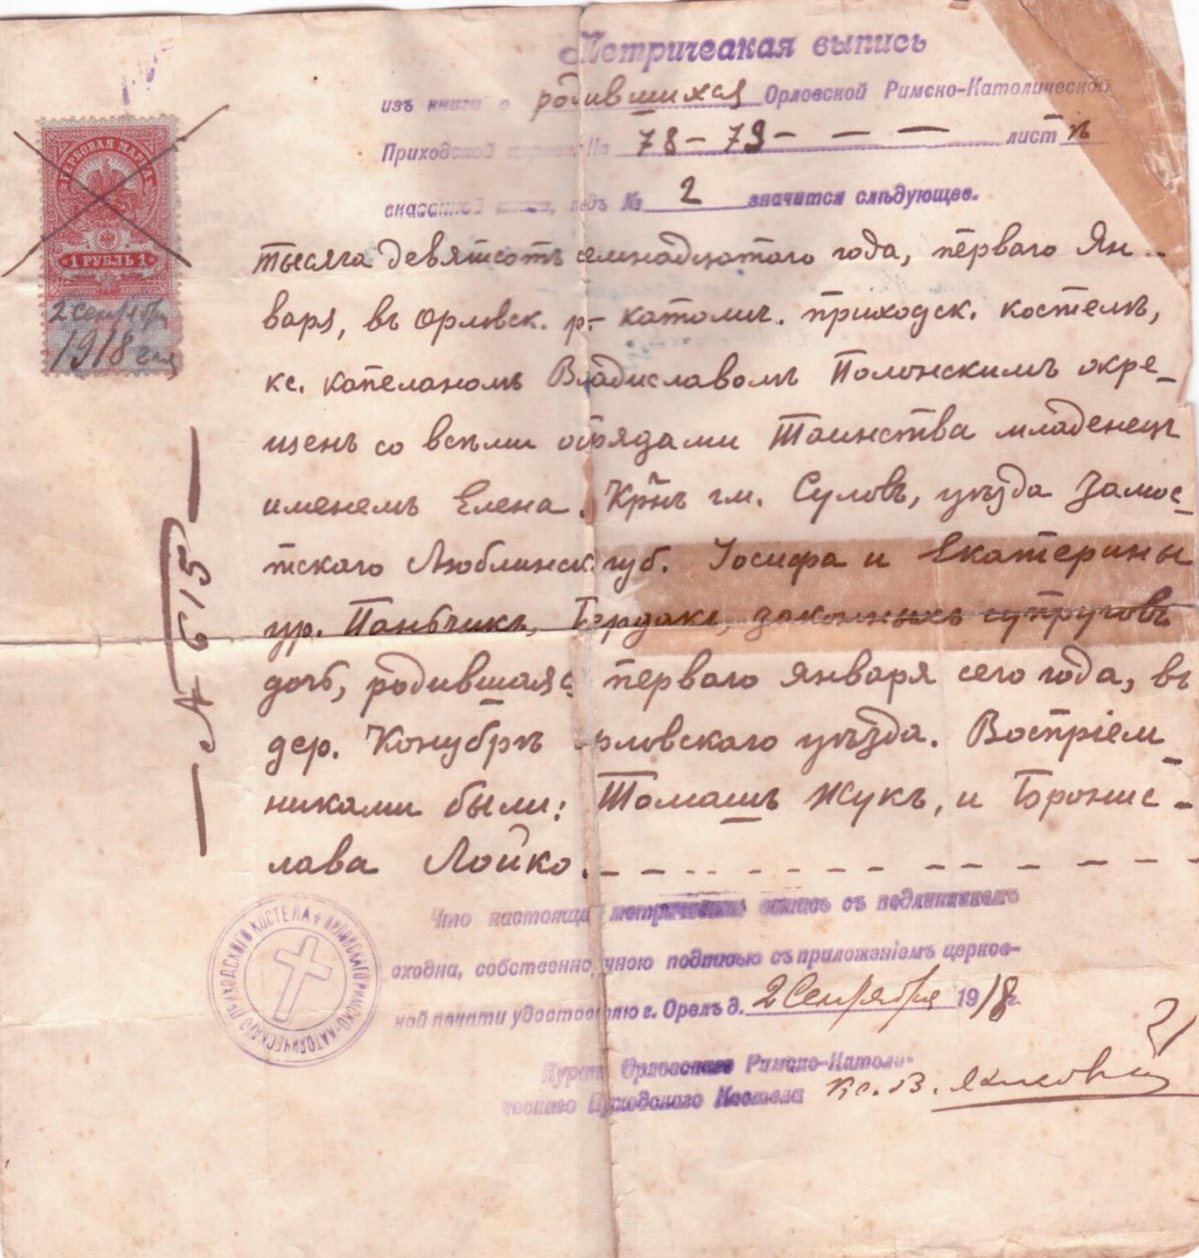 Метрическая выпись
изъ книги о родившихся Орловской Римско-Католической
Приходской церкви На 78-79- — — — листѣ
сказанной книги, подъ № 2 значится слѣдующее.
ГЕРБОВАЯ МАРКА
1 РУБЛЬ 1
2 Сентября
1918 года
тысяча девятсотъ семнадцатаго года, перваго Ян-
варя, въ Орловск. р.-католич. приходск. костелѣ,
кс. капеланомъ Владиславомъ Полонскимъ окре-
щенъ со всѣми обрядами Таинства младенецъ
именемъ Елена. Крнъ гм. Суловъ, уѣзда Замос-
тскаго Люблинск. губ. Іосифа и Екатерины
ур. Паньчикъ, Бердакъ, законныхъ супруговъ
дочь, родившаяся перваго января сего года, въ
дер. Орловскаго уѣзда. Воспріем-
никами были: Томашъ Жукъ, и Бронис-
лава Лойко. - - - - - - - - - -
№ 615
Что настоящая метрическая выпись съ подлинникомъ
сходна, собственноручною подписью съ приложеніемъ церков-
ной печати удостовѣряю г. Орелъ д. 2 Сентября 1918 г.
Куратъ Орловскаго Римско-Католи-
ческаго Приходскаго Костела кс. В.
ОРЛОВСКАГО РИМСКО-КАТОЛИЧЕСКАГО ПРИХОДСКАГО КОСТЕЛА